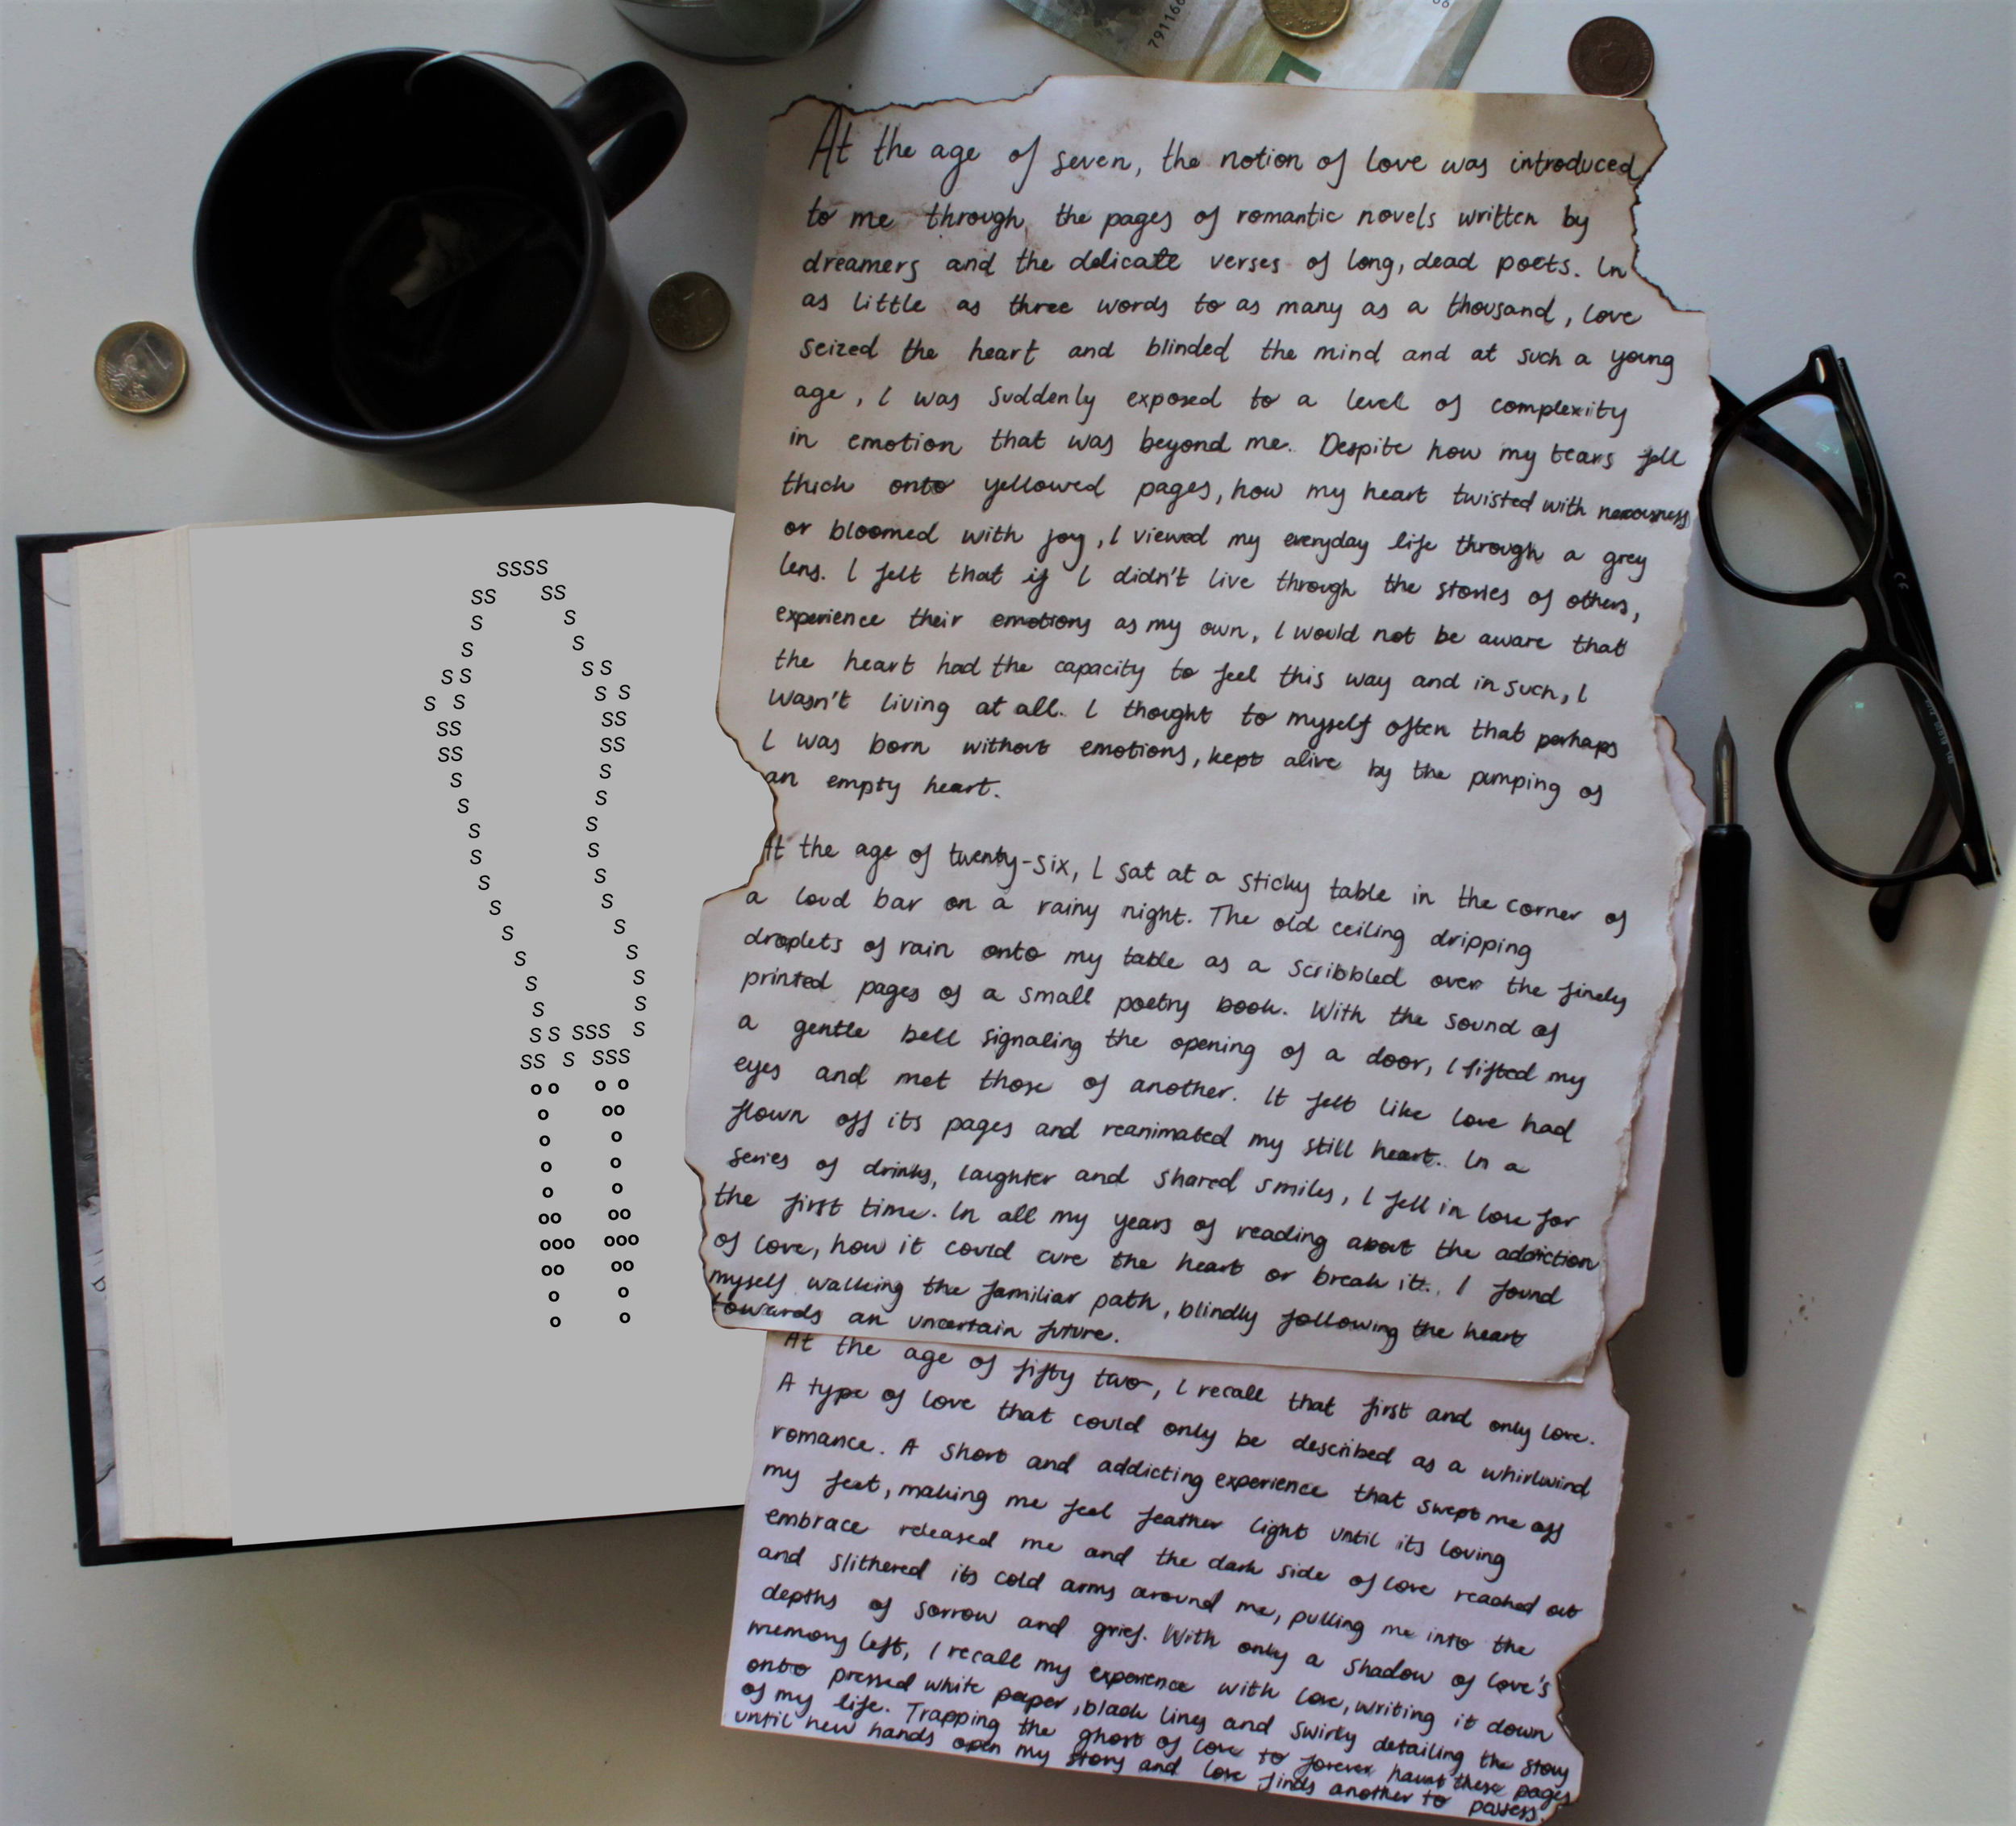 791166
At the age of seven, the notion of love was introduced
to me through the pages of romantic novels written by
dreamers and the delicate verses of long, dead poets. In
as little as three words to as many as a thousand, love
seized the heart and blinded the mind and at such a young
age, I was suddenly exposed to a level of complexity
in emotion that was beyond me. Despite how my tears fell
thick onto yellowed pages, how my heart twisted with nervousness
or bloomed with joy, I viewed my everyday life through a grey
lens. I felt that if I didn't live through the stories of others,
experience their emotions as my own, I would not be aware that
the heart had the capacity to feel this way and in such, I
wasn't living at all. I thought to myself often that perhaps
I was born without emotions, kept alive by the pumping of
an empty heart.
At the age of twenty-six, I sat at a sticky table in the corner of
a loud bar on a rainy night. The old ceiling dripping
droplets of rain onto my table as a scribbled over the finely
printed pages of a small poetry book. With the sound of
a gentle bell signaling the opening of a door, I lifted my
eyes and met those of another. It felt like love had
flown off its pages and reanimated my still heart. In a
series of drinks, laughter and shared smiles, I fell in love for
the first time. In all my years of reading about the addiction
of love, how it could cure the heart or break it. I found
myself walking the familiar path, blindly following the heart
towards an uncertain future.
At the age of fifty two, I recall that first and only love.
A type of love that could only be described as a whirlwind
romance. A short and addicting experience that swept me off
my feet, making me feel feather light until its loving
embrace released me and the dark side of love reached out
and slithered its cold arms around me, pulling me into the
depths of sorrow and grief. With only a shadow of love's
memory left, I recall my experience with love, writing it down
onto pressed white paper, black lines and swirls detailing the story
of my life. Trapping the ghost of love to forever haunt these pages
until new hands open my story and love finds another to possess.
SSSS
SS SS
S S
S S
SS SS
S S S S
SS SS
SS SS
S S
S S
S S
S S
S S
S S
S S
S S
S S
S S
S S SSS S
SS S SSS
oo o o
o oo
o o
o o
o o
oo oo
ooo ooo
oo oo
o o
o o